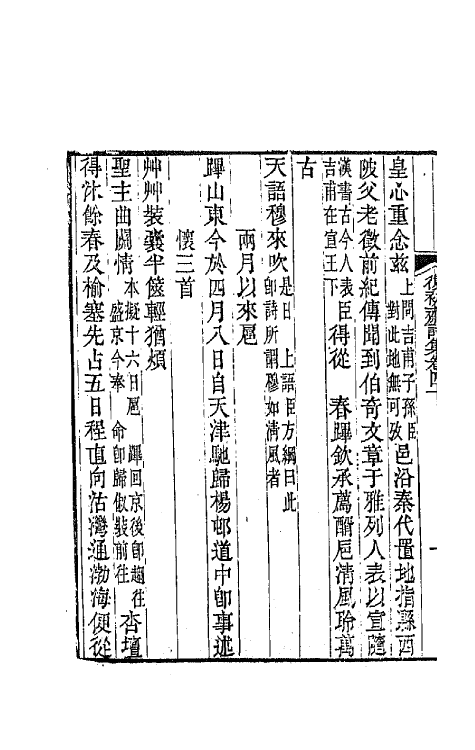 皇心重念茲上問吉甫子孫臣對此地無可攷邑沿秦代置地指縣西
陂父老徵前紀傳聞到伯奇文章于雅列人表以宣隨
漢書古今人表臣吉甫在宣王下得從 春蹕欽承薦酹巵清風聆萬
古
天語穆來吹是日 上語臣方綱曰此卽詩所謂穆如清風者
兩月以來扈
蹕山東今於四月八日自天津馳歸楊邨道中卽事述
懷三首
艸艸裝囊半篋輕猶煩
聖主曲關情本擬十六日扈 蹕回京後卽趨往盛京今奉 命卽歸俶裝前往杏壇
得沐餘春及榆塞先占五日程直向沽灣通渤海便從
復初齋詩集卷四十
一